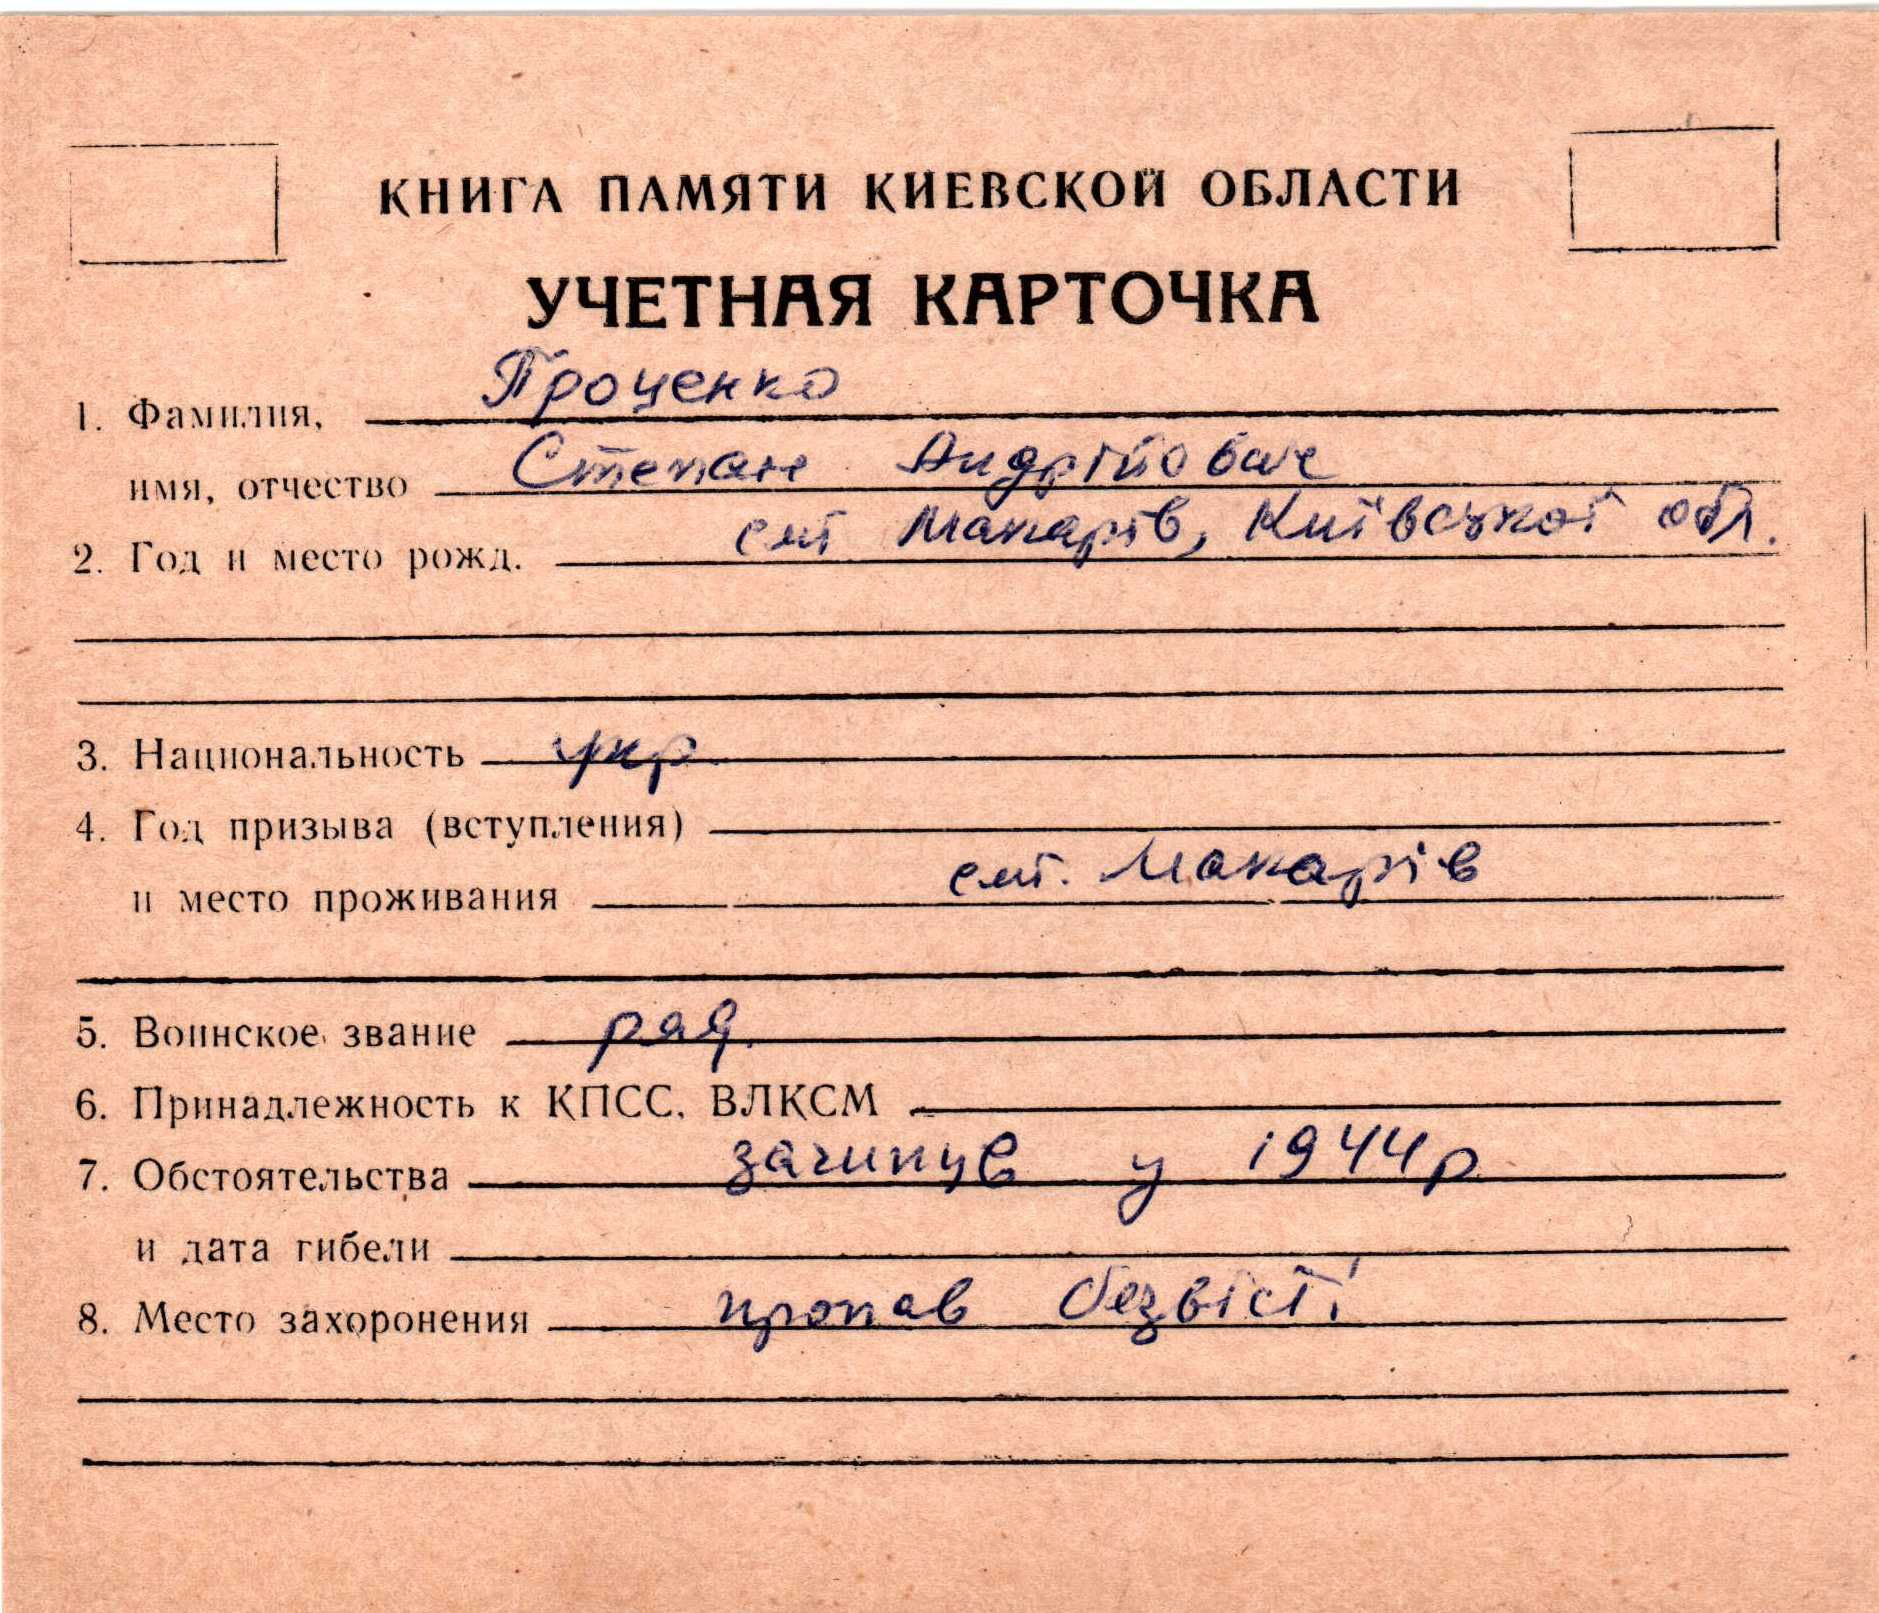 КНИГА ПАМЯТИ КИЕВСКОЙ ОБЛАСТИ
УЧЕТНАЯ КАРТОЧКА
1. Фамилия, Проценко
имя, отчество Степан Андрійович
2. Год и место рожд. смт Макарів, Київської обл.
3. Национальность укр.
4. Год призыва (вступления)
и место проживания смт. Макарів
5. Воинское звание ряд.
6. Принадлежность к КПСС, ВЛКСМ
7. Обстоятельства загинув у 1944 р
и дата гибели
8. Место захоронения пропав безвісті